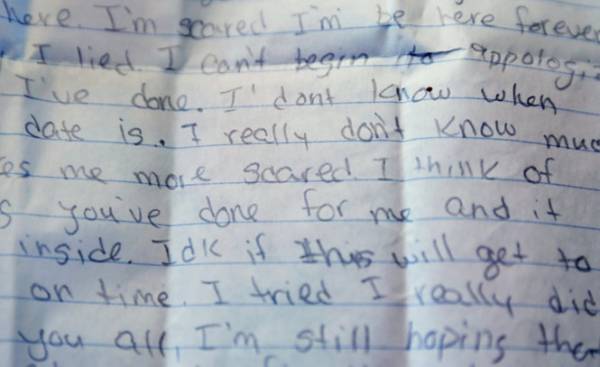 here. I'm scared I'm be here forever
I lied. I can't begin to appologi
I've done. I'dont know when
date is. I really don't know muc
es me more scared. I think of
s you've done for me and it
inside. Idk if this will get to
on time. I tried I really did
you all, I'm still hoping ther